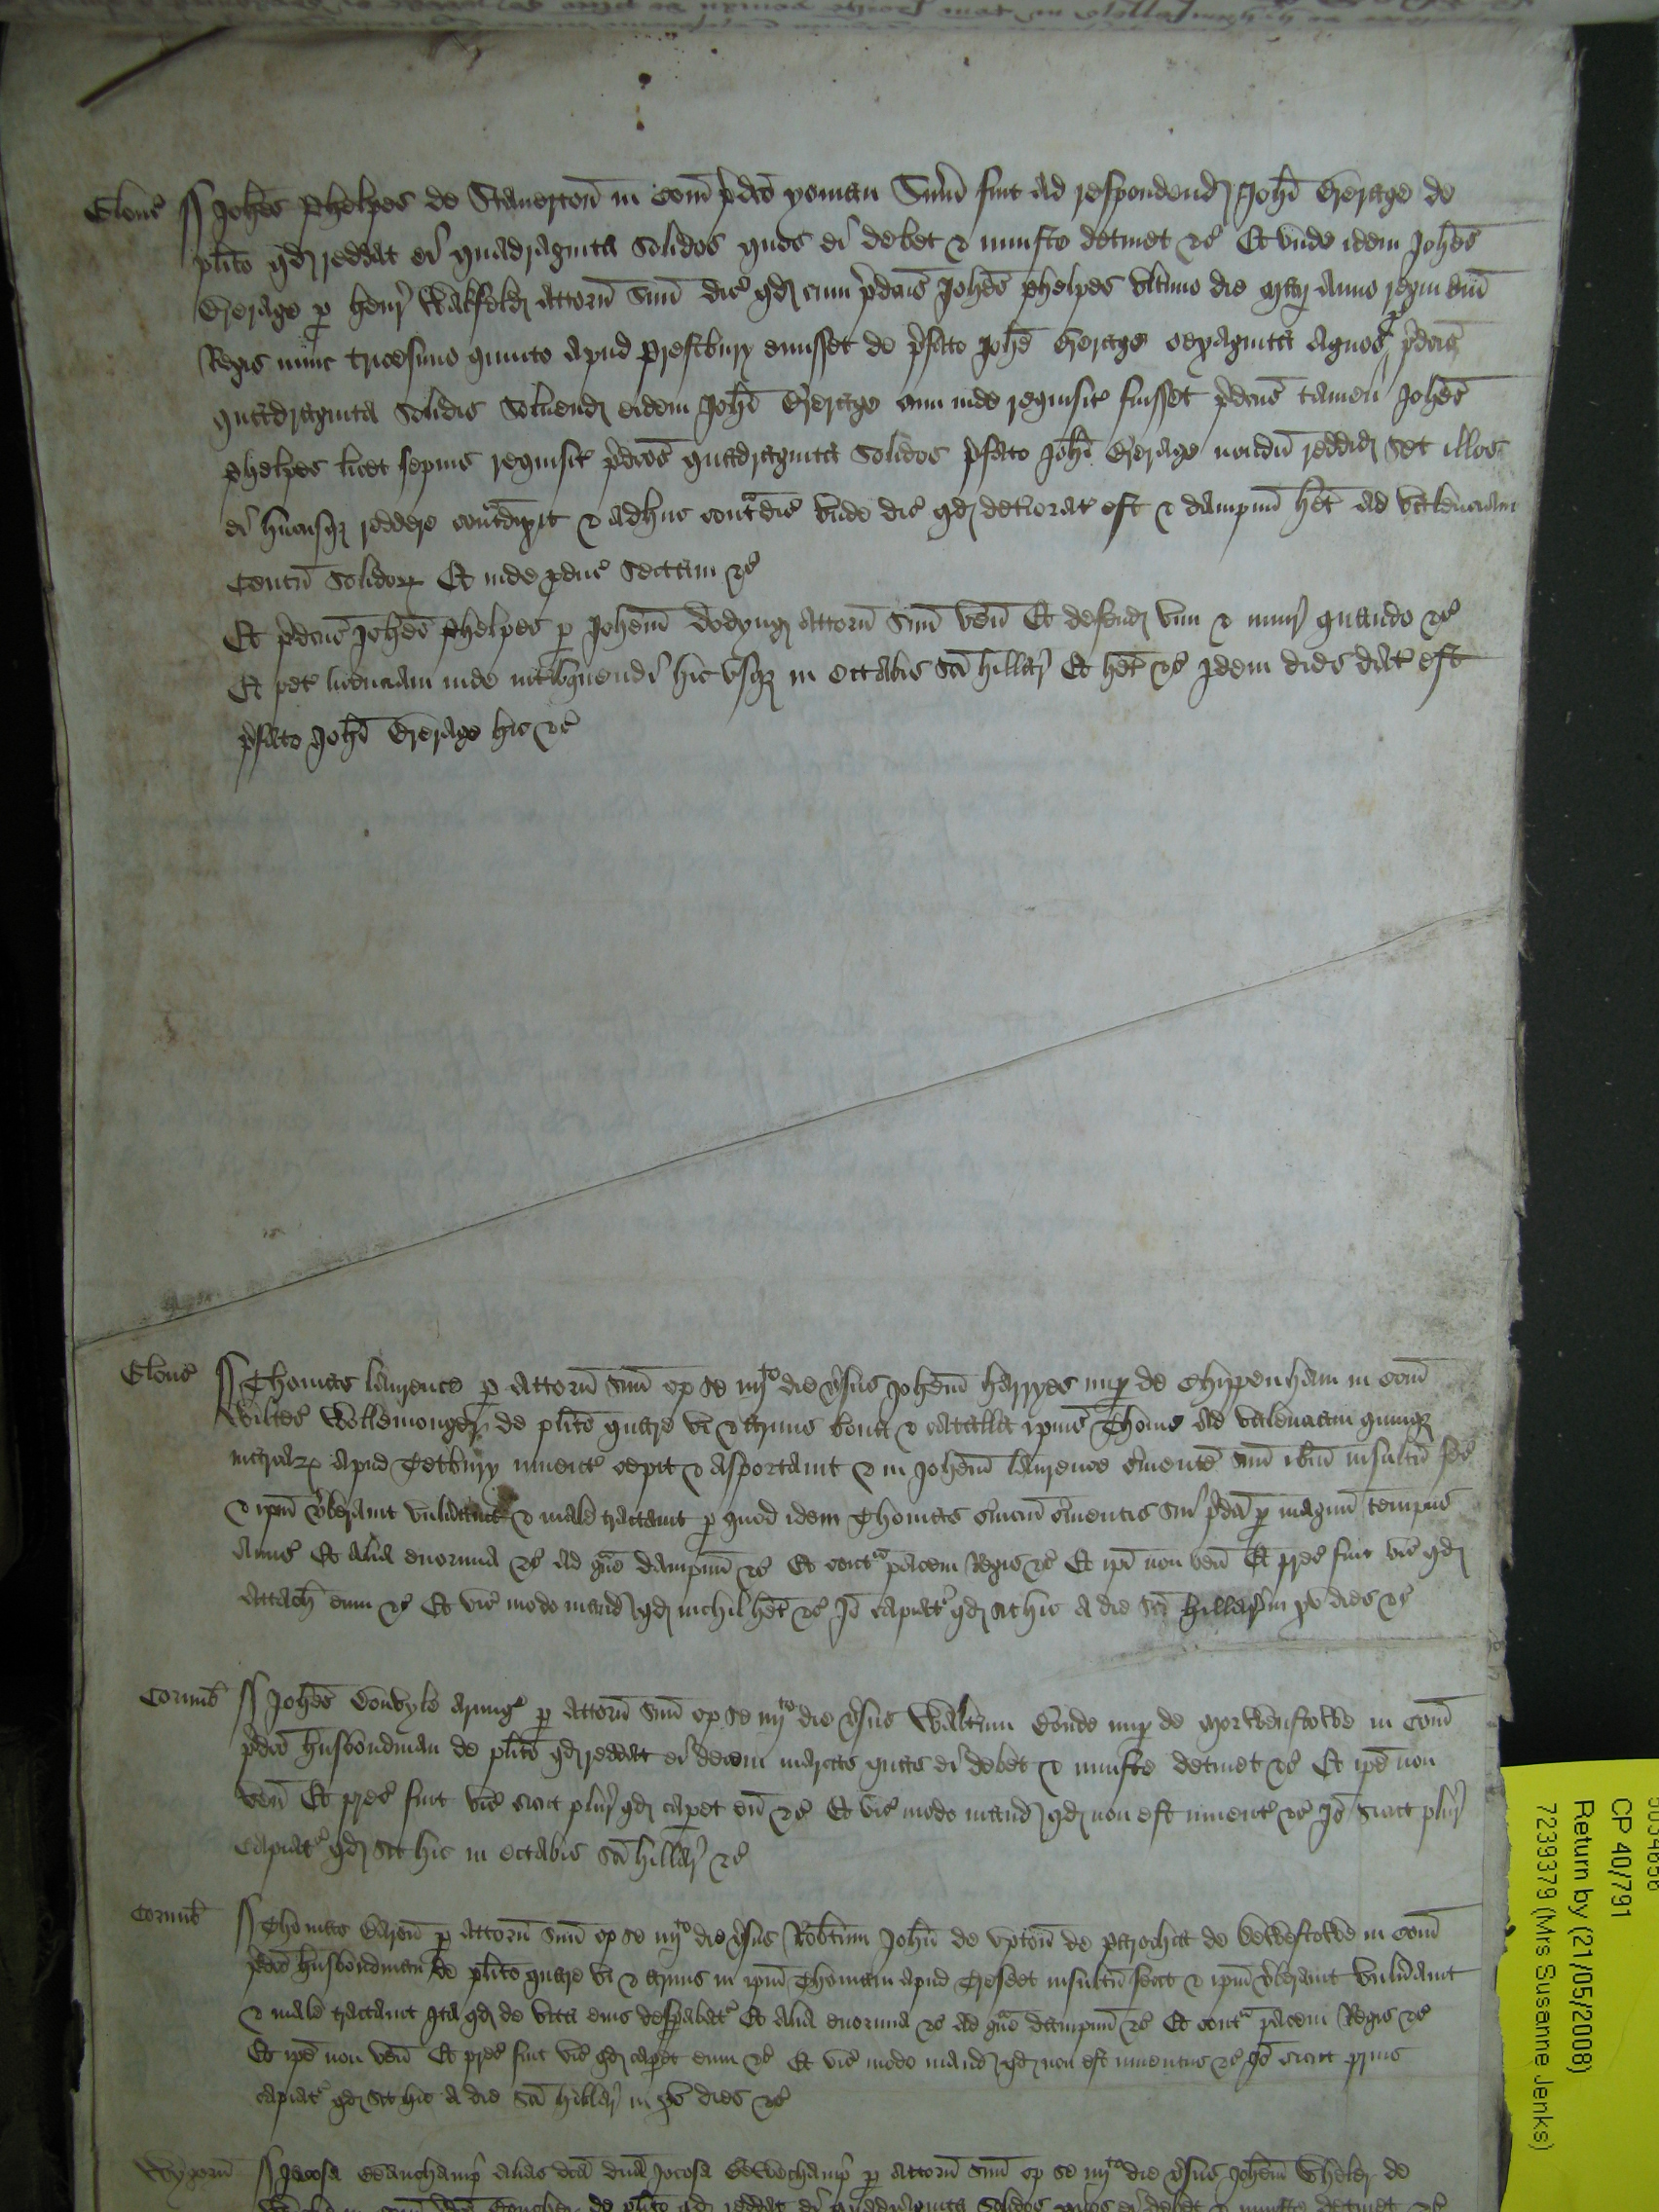 Glouc' ss Joh'es Phelpes de Stauerton' in Com' p'd'co yoman Sum' fuit ad respondend' Joh'i Gerrage de
pl'ito q'd reddat ei quadraginta solidos quos ei debet & iniuste detinet &c' Et unde idem Joh'es
Gerrage p' Henr' Walfeld' attorn' suu' dic' q'd cum p'd'cus Joh'es Phelpes ultimo die Maij anno regni d'ni
Regis nunc tricesimo quinto apud Prestbury emisset de p'fato Joh'e Gerrage sexaginta agnos p' p'd'cis
quadraginta solidis soluend' eidem Joh'i Gerrage cum inde requisit' fuisset p'd'cus tamen Joh'es
Phelpes licet sepius requisit' p'd'cos quadraginta solidos p'fato Joh'i Gerrage nondu' reddid' set illos
ei hucusq' reddere cont'dixit & adhuc cont'dic' unde dic' q'd deteriorat' est & dampnu' h'et ad valenciam
Centu' solidor' Et inde p'duc' sectam &c'
Et p'd'cus Joh'es Phelpes p' Joh'em Dodyng' attorn' suu' ven' Et defend' vim & iniur' quando &c'
Et pet' licenciam inde int'loquendi hic usq' in Octabis s'c'i Hillar' Et h'et &c' Idem dies dat' est
p'fato Joh'i Gerrage hic &c'
Glouc' ss Thomas Laurence p' attorn' suu' op' se iiij to die v'sus Joh'em Harryes nup' de Chippenham in Com'
Wiltes' Wollemonger de pl'ito quare vi & armis bona & catalla ip'ius Thome ad valenciam quinq'
marcar' apud Tetbury inuent' cepit & asportauit & in Joh'em Laurence s'uiente' suu' ib'm insultu' fec'
& ip'm v'berauit vuln'auit & male tractauit p' quod idem Thomas s'uiciu' s'uientis sui p'd'ci p' magnu' tempus
amis' Et alia enormia &c' ad g'ue dampnu' &c' Et cont' pacem Regis &c' Et ip'e non ven' Et prec' fuit vic' q'd
attach' eum &c' Et vic' modo mand' q'd nichil h'et &c' Io' capiat' q'd sit hic a die s'c'i Hillar' in xv dies &c'
Cornub' ss Joh'es armig' p' attorn' suu' op' se iiij to die v'sus Walt'um nup' de Morwenstowe in Com'
p'd'co husbondman de pl'ito q'd reddat ei decem marcas quas ei debet & iniuste detinet &c' Et ip'e non
ven' Et prec' fuit vic' sicut plur' q'd caperet eu' &c' Et vic' modo mand' q'd non est inuent' &c' Io' sicut plur'
capiat' q'd sit hic in Octabis s'c'i Hillar' &c'
Cornub' ss Thomas p' attorn' suu' op' se iiij to die v'sus Rob'tum Joh'n de Upton' de parochia de in Com'
p'd'co husbondman de pl'ito quare vi & armis in ip'm Thomam apud insultu' fecit & ip'm v'berauit vuln'auit
& male tractauit Ita q'd de vita eius desp'abat' Et alia enormia &c' ad g'ue dampnu' &c' Et cont' pacem Regis &c'
Et ip'e non ven' Et prec' fuit vic' q'd caperet eum &c' Et vic' modo mand' q'd non est inuentus &c' Io' sicut prius
capiat' q'd sit hic a die s'c'i Hillar' in xv dies &c'
Wygorn' ss Jocosa Beauchamp' alias d'c'a d'na Jocosa Bewechamp' p' attorn' suu' op' se iiij to die v'sus Joh'em Wheler de
de pl'ito q'd reddat ei quadraginta solidos quos ei debet & iniuste detinet &c'
CP 40/791
Return by (21/05/2008)
7239379 (Mrs Susanne Jenks)